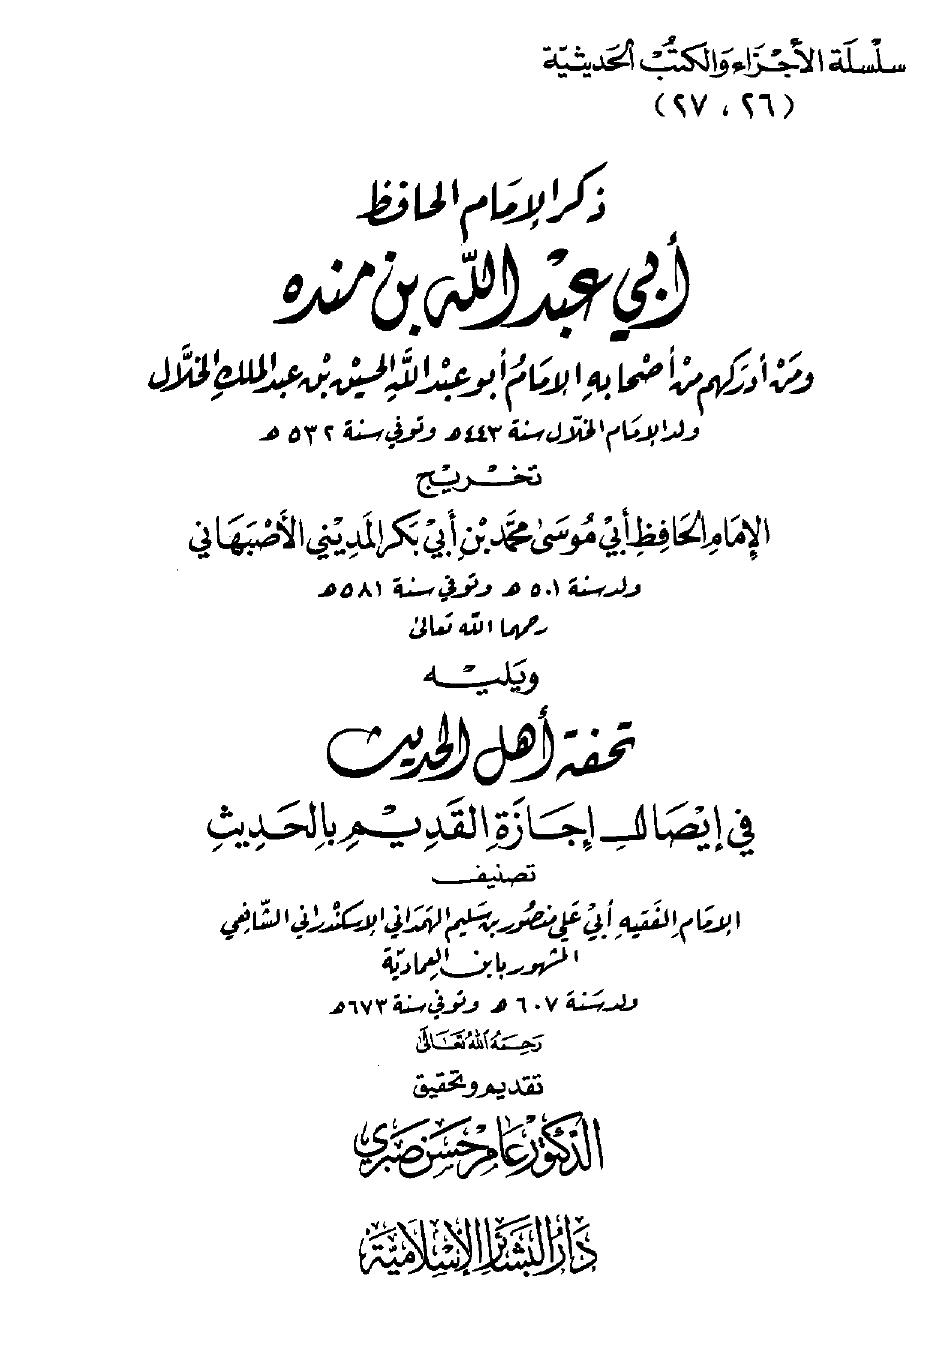 سلْسلَة الأجْزَاء وَالكتُبْ الحَديثيّة
(٢٦ ، ٢٧)
ذكر الإمَام الحافظ
أبي عبْد الله بن منده
ومَنْ أدرَكهم منْ أصْحابهِ الإمَامُ أبو عبْد اللَّهِ الحسيْن بْن عبد الملكِ الخلَّال
ولد الإمَام الخلّال سنة ٤٤٣هـ وتوفي سنة ٥٣٢ هـ
تخْـريْج
الإمَامِ الحَافِظِ أبيْ مُوسَىٰ محمَّد بْنِ أبيْ بَكر المَديْني الأصْبَهَاني
ولد سنة ٥٠١ هـ وتوفي سنة ٥٨١هـ
رحمهما الله تعالىٰ
ويَليْـه
تحفة أهل الحديث
في إيْصَالِ إجَازَةِ القَدِيْمِ بِالحَدِيثِ
تصنيف
الإمَام الفَقيهِ أبيْ عَلي منصُور بن سَليم الهمَداني الإسكنْدراني الشَّافعي
المشهور بابن العِماديّة
ولد سَنة ٦٠٧ هـ وتوفي سنة ٦٧٣هـ
رَحِمَهُ اللهُ تعَالىٰ
تقديم وتحقيق
الدّكتور عَامر حَسَن صَبري
دَارُ البشَائر الإسْلاميّة